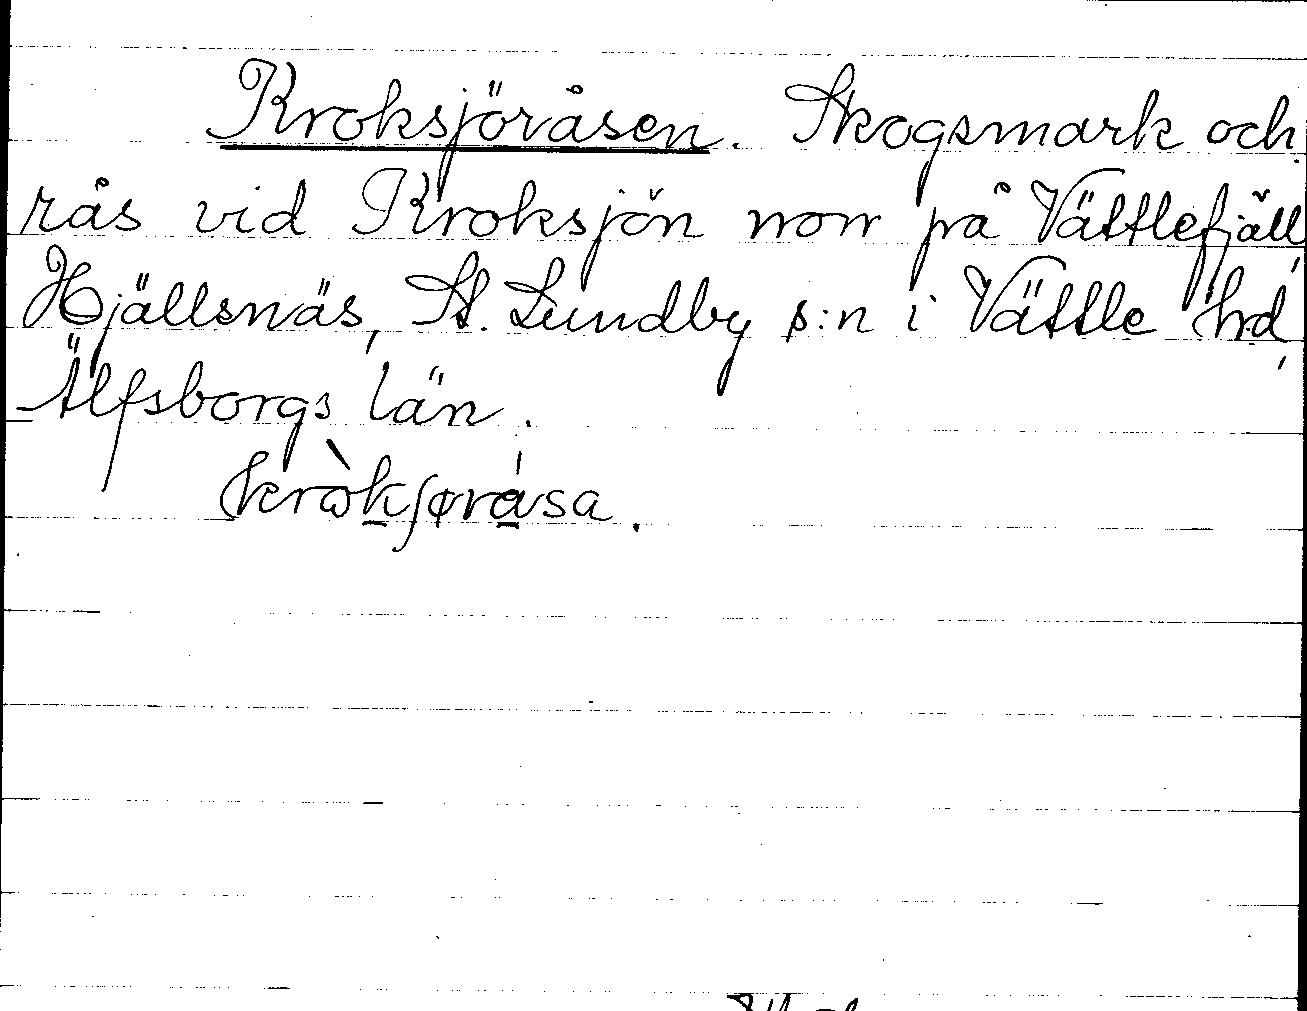 Kroksjöråsen. Skogsmark och
rås vid Kroksjön norr på Vättlefjäll,
Hjällsnäs, St. Lundby s:n i Vättle hrd,
Älfsborgs län.